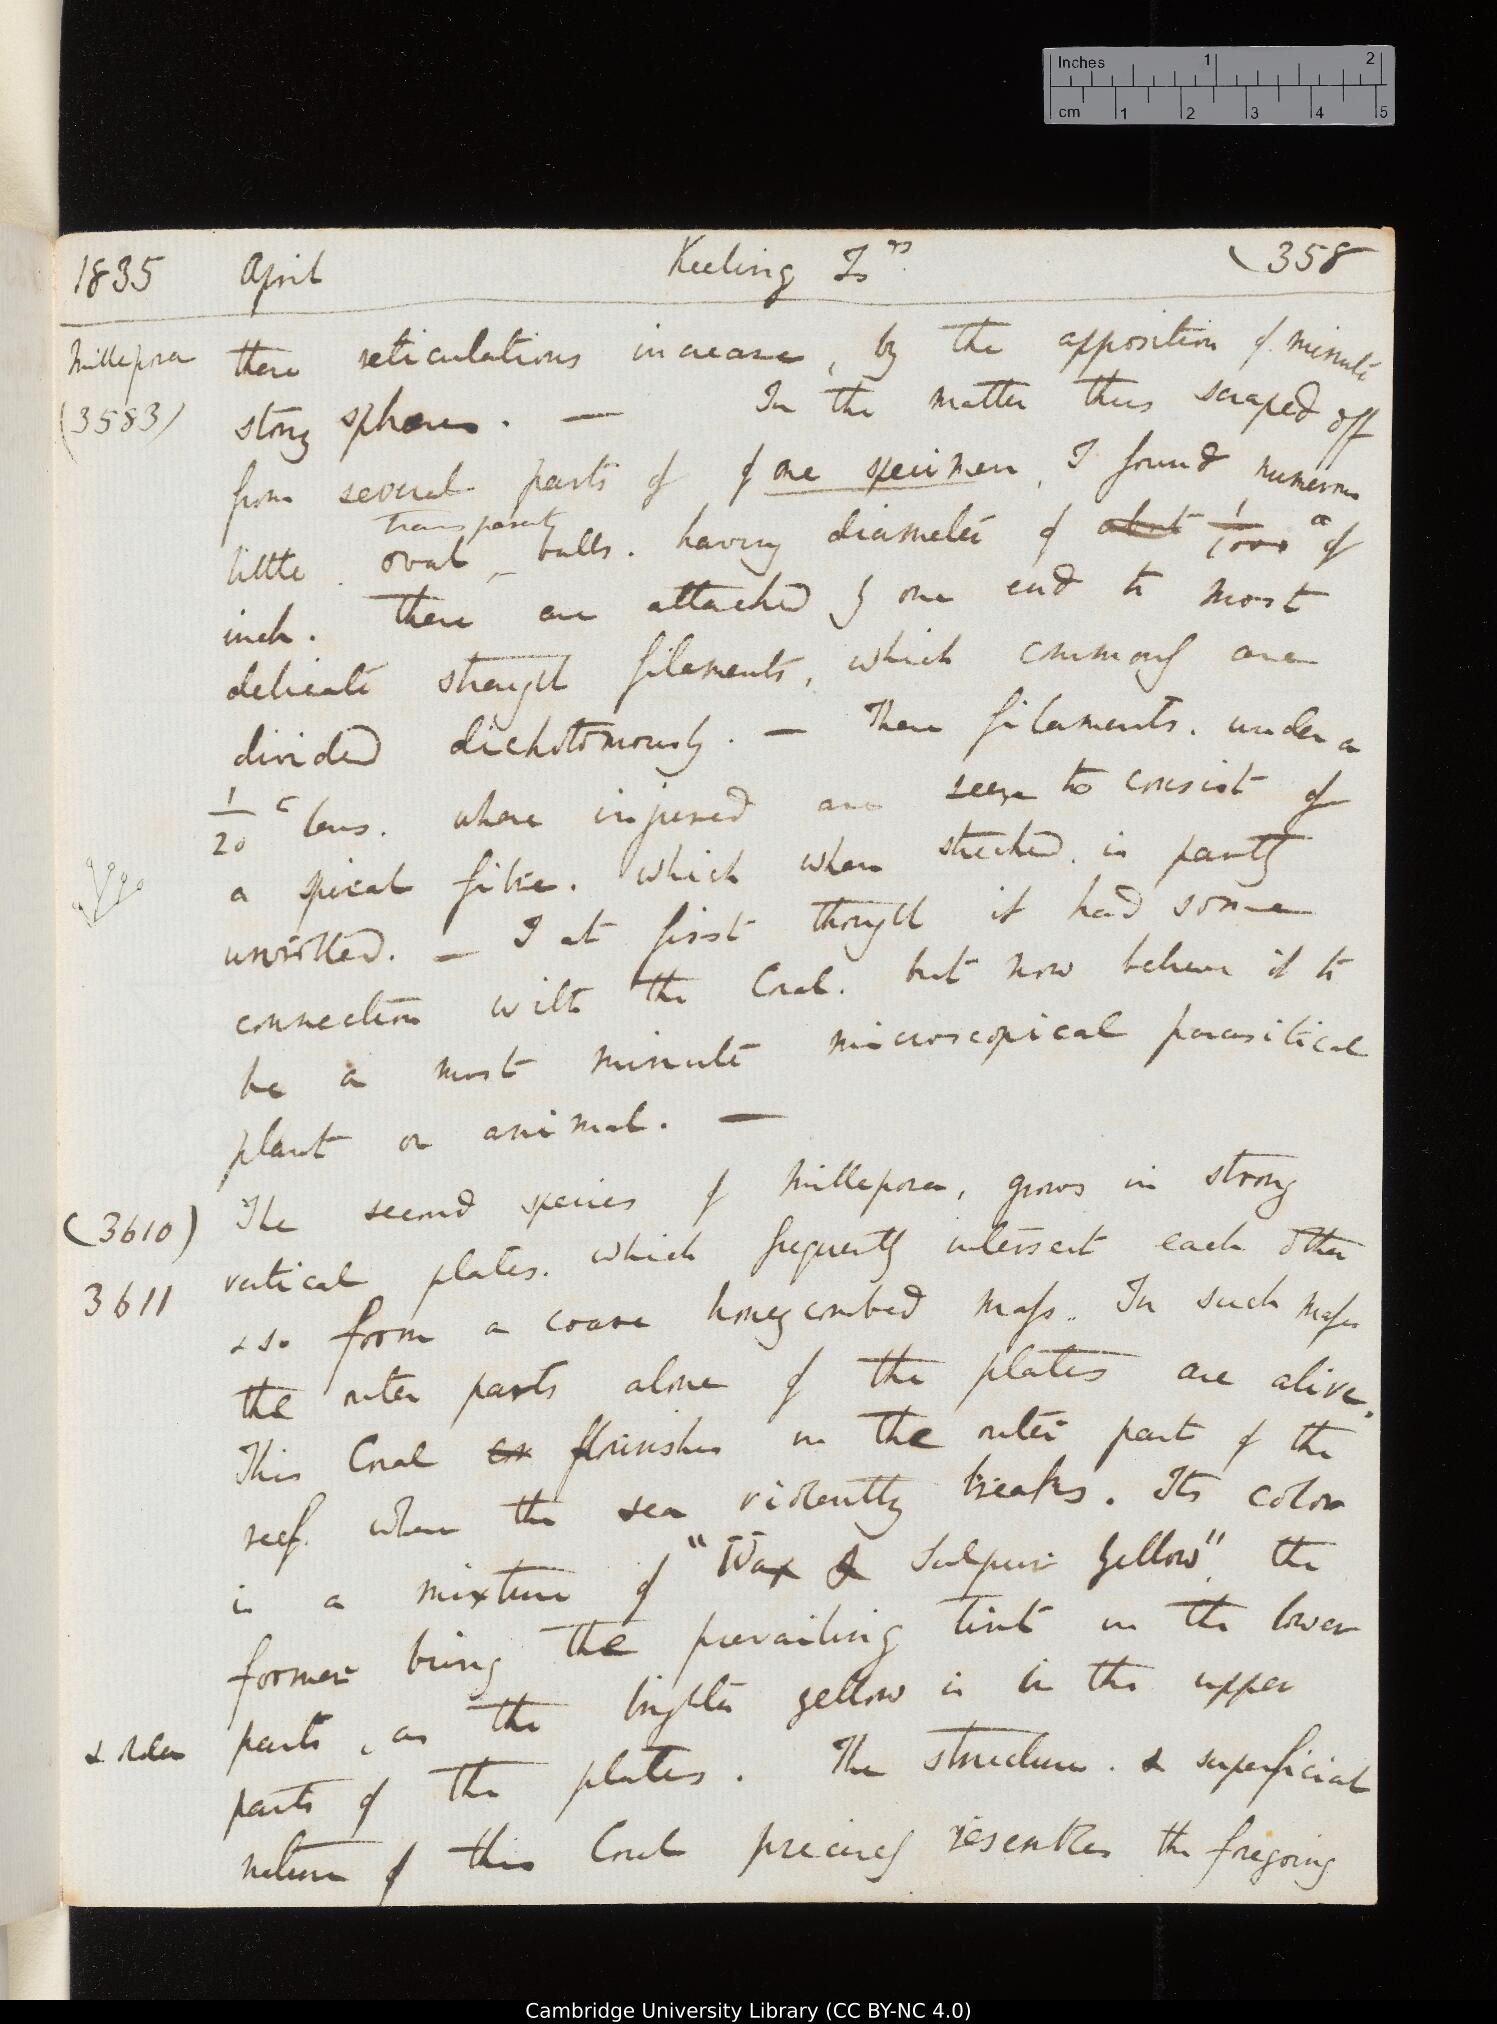 Inches 1 2
cm 1 2 3 4 5
1835 April Keeling Is.ds (358
Millepora
(3583)
these reticulations increase, by the apposition of minute
stony spheres. — In the matter thus scraped off
from several parts of of one specimen, I found numerous
transparent
little oval balls. having diameter of about 1/1000 a of
inch. These are attached by one end to most
delicate straight filaments, which commonly are
divided dichotomously. — These filaments. under a
1/20 c lens. where injured are seen to consist of
a spiral fibre. which when streched. is partly
unrolled. — I at first thought it had some
connection with the Coral. but now believe it to
be a most minute microscopical parasitical
plant or animal. —
(3610)
3611
The second species of Millepora, grows in strong
vertical plates. which frequently intersect each other
& so form a coarse honeycombed mass. In such masses
the outer parts alone of the plates are alive.
This Coral flourishes in the outer part of the
reef. where the sea violently breaks. Its color
is a mixture of "Wax & Sulpur Yellow", the
former being the prevailing tint in the lower
parts, as the brighter yellow is in the upper
& older
parts of the plates. The structure. & superficial
nature of this Coral precisely resembles the foregoing
Cambridge University Library (CC BY-NC 4.0)